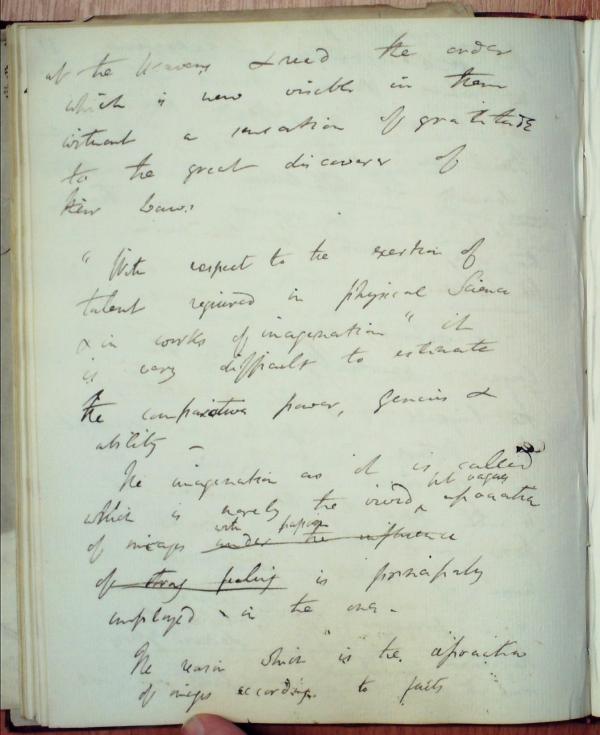 at the Heavens & read the order
which is now visible in them
without a sensation of gratitude
to the great discoverer of
their Laws.
"With respect to the exertion of
talent required in physical Science
& in works of imagination" it
is very difficult to estimate
the comparative power, genius &
ability –
The imagination as it is called
which is merely the vivid association
of images with passion under the influence
of strong feeling is principally
employed in the one –
The reason which is the association
of images according to facts